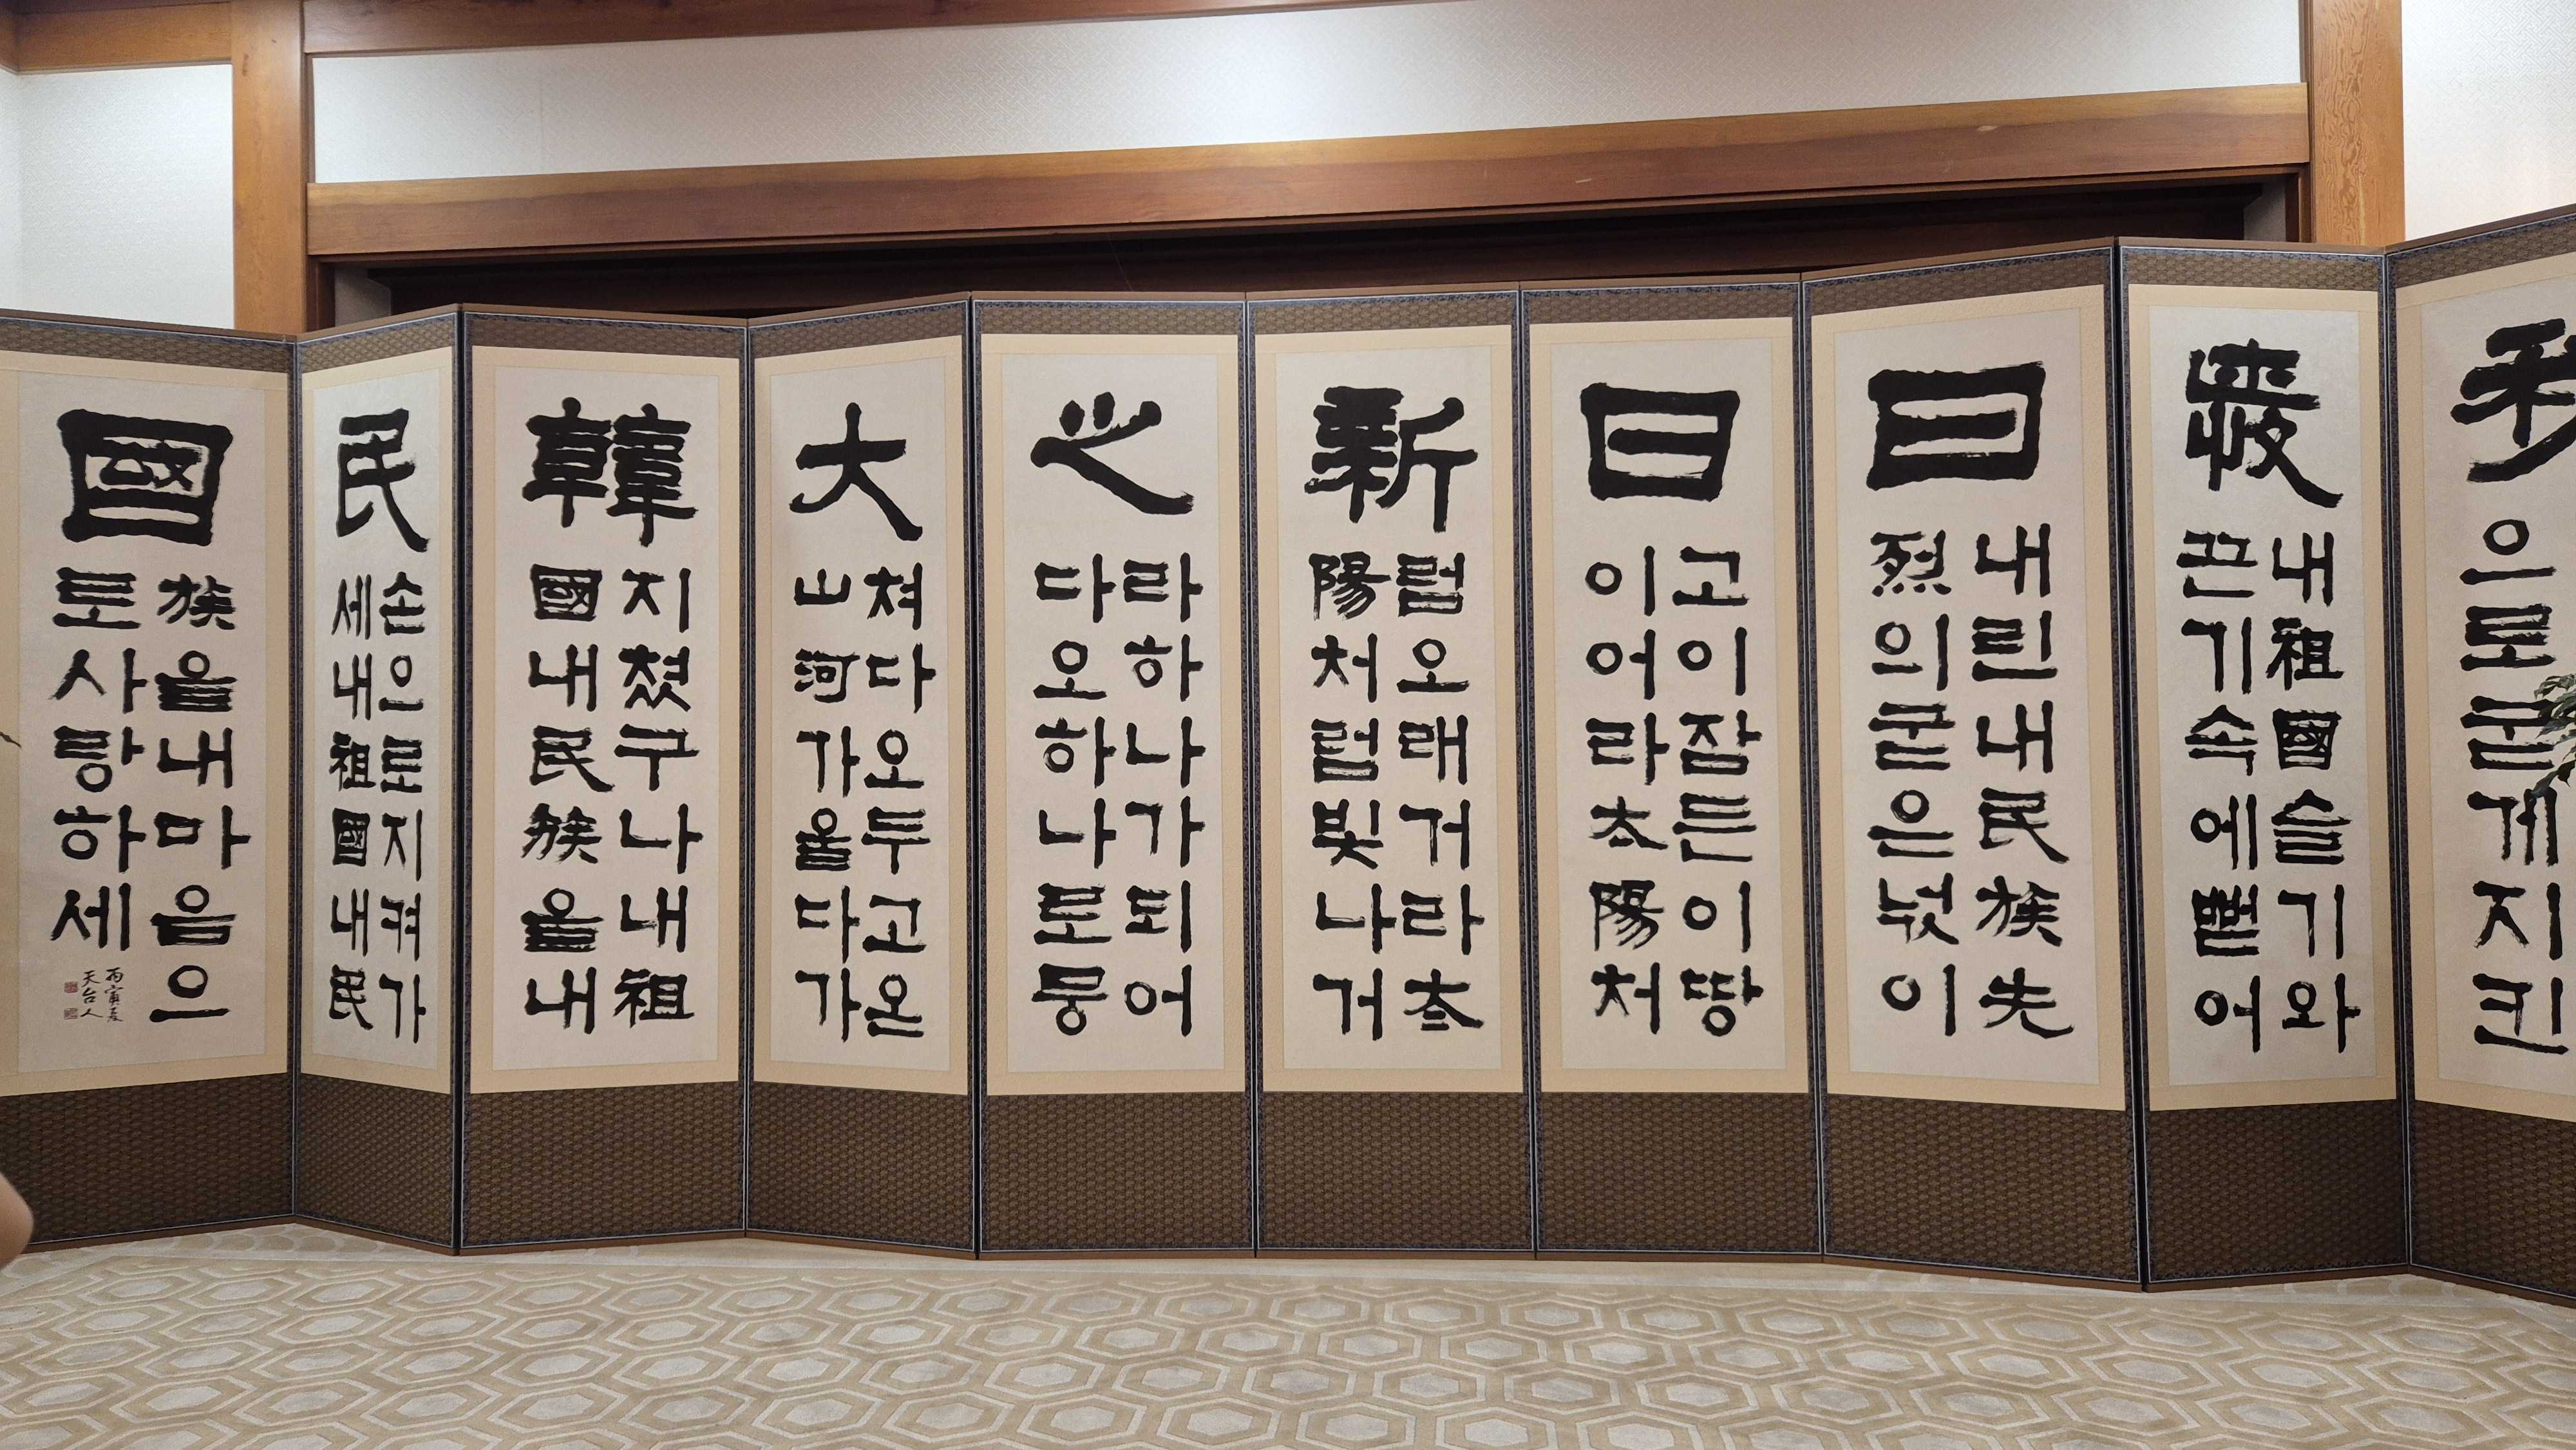 으로굳게지킨
내祖國슬기와
끈기속에뻗어
日
내린내民族先
烈의굳은넋이
日
고이잠든이땅
이어라太陽처
新
럼오래거라太
陽처럼빛나거
之
라하나가되어
다오하나로뭉
大
쳐다오두고온
山河가울다가
韓
지쳤구나내祖
國내民族을내
民
손으로지켜가
세내祖國내民
國
族을내마음으
로사랑하세
丙寅
天台人